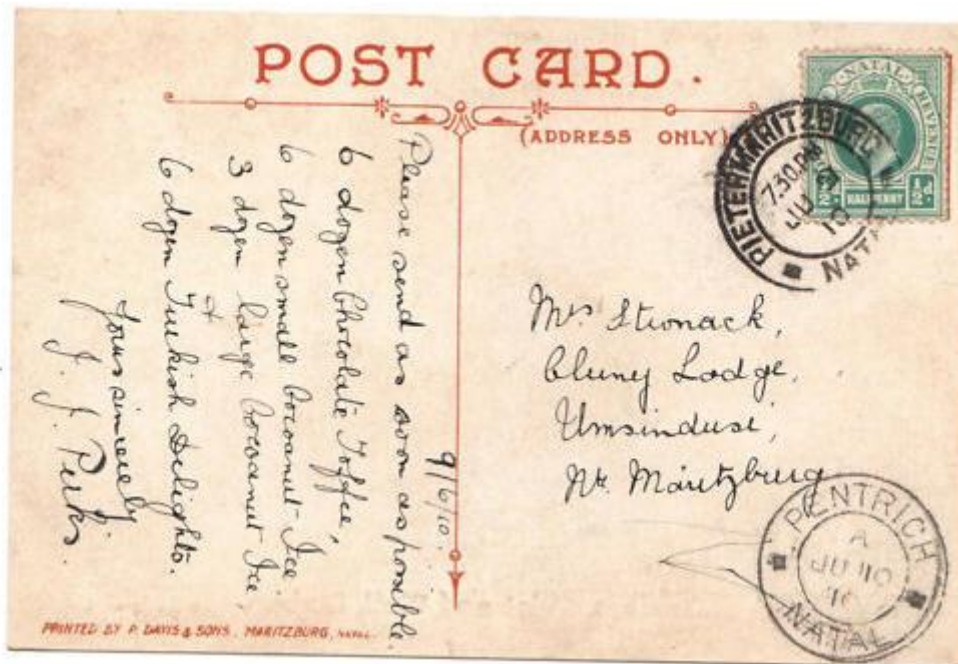 POST CARD.
(ADDRESS ONLY)
NATAL REVENUE
½d HALFPENNY ½d
PIETERMARITZBURG
7.30 PM
JU 9
10
NATAL
9/6/10.
Please send as soon as possible
6 dozen Chocolate Toffee,
6 dozen small Cocoanut-Ice
3 dozen large Cocoanut Ice
&
6 dozen Turkish Delights.
Yours sincerely
J. J. Perks
Mrs Stronack,
Cluny Lodge,
Umsindusi,
Nr. Maritzburg
PENTRICH
A
JU 10
10
NATAL
PRINTED BY P. DAVIS & SONS, MARITZBURG, NATAL.